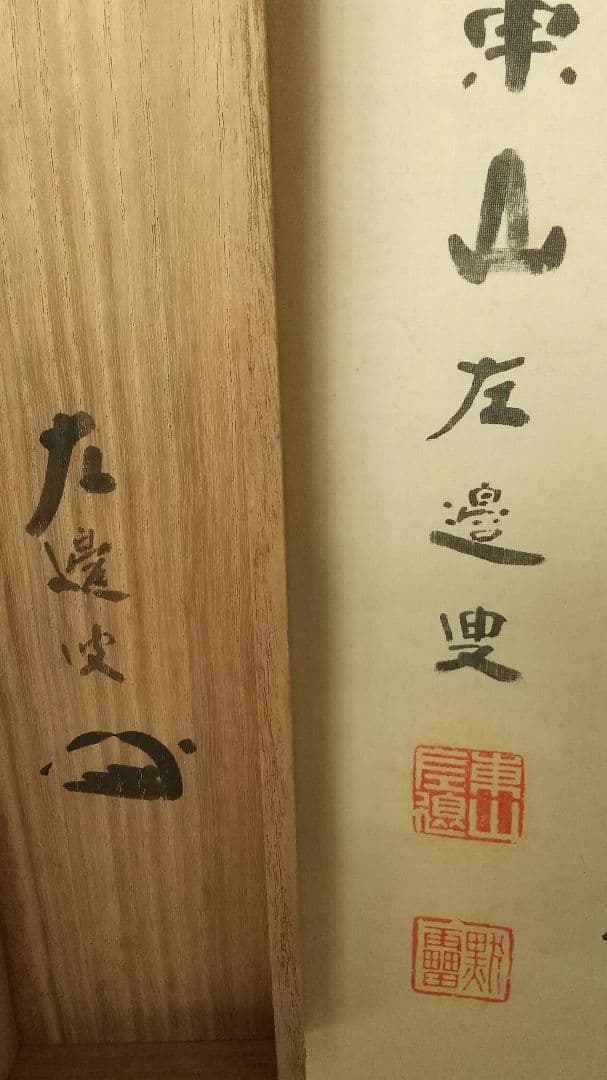 東山左邊叟
東山
左邊
默
雷
左邊叟